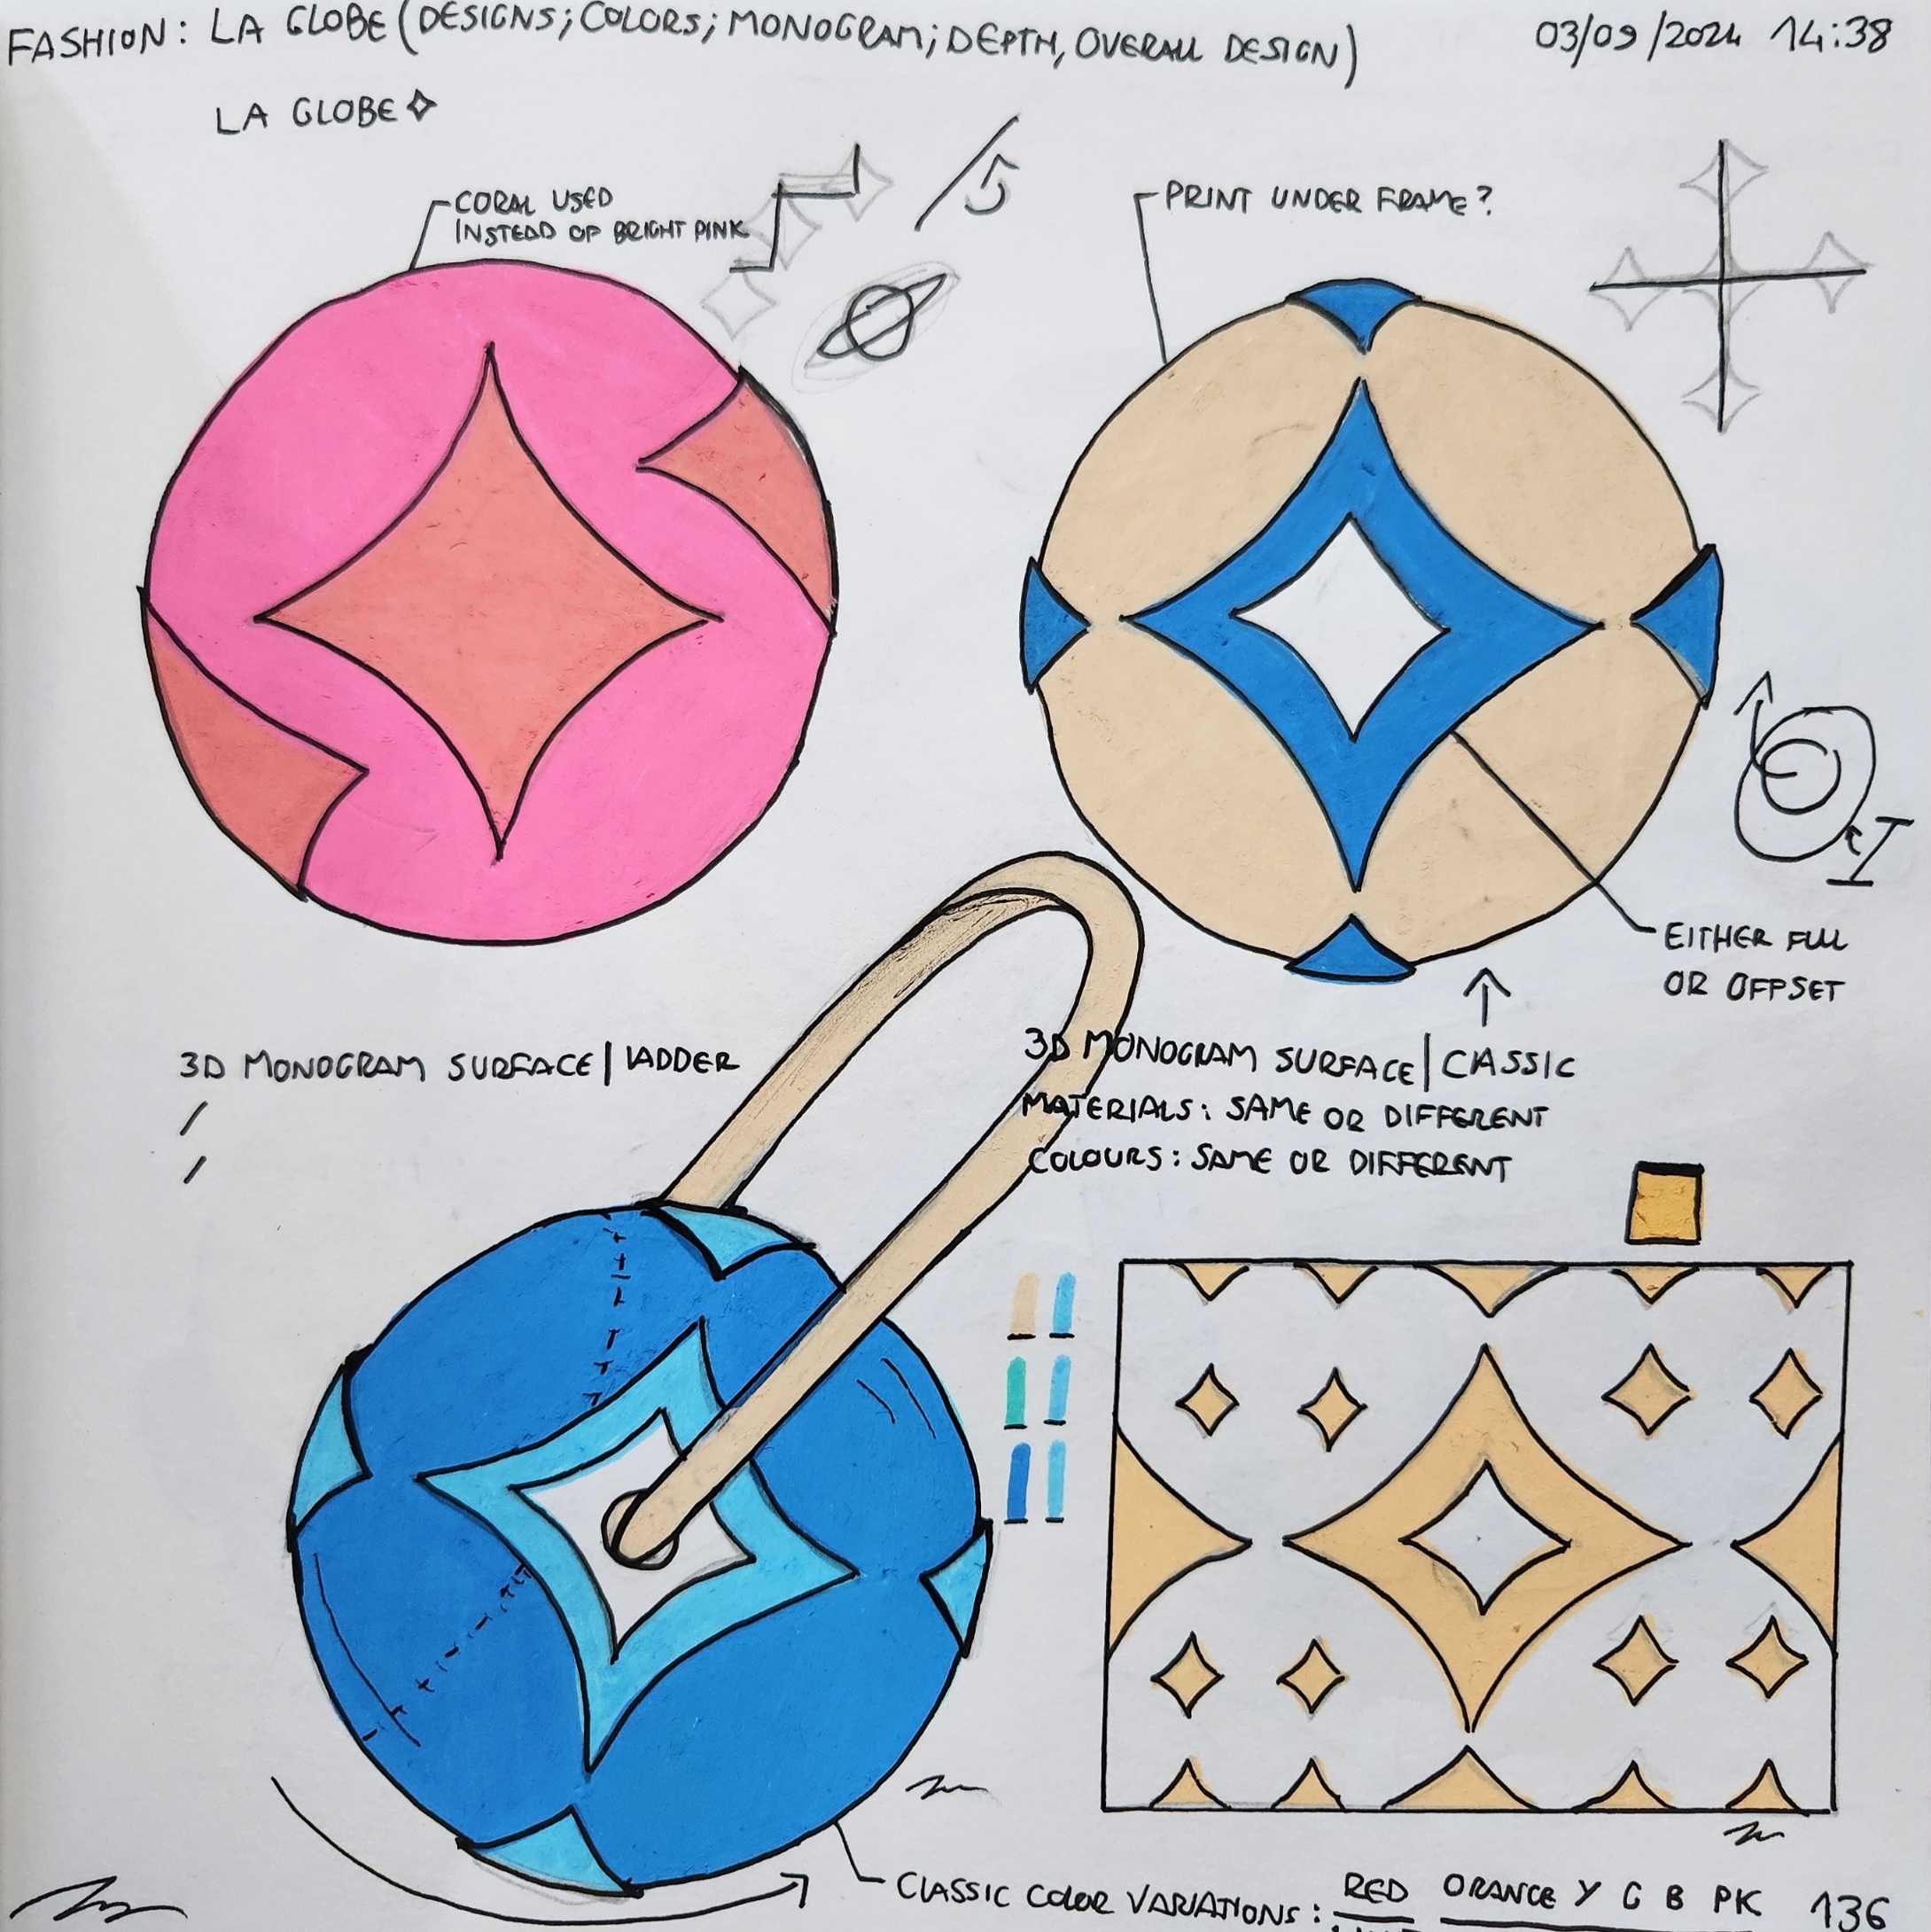 FASHION: LA GLOBE (DESIGNS; COLORS; MONOGRAM; DEPTH, OVERALL DESIGN)
03/09/2024 14:38
LA GLOBE
CORAL USED
INSTEAD OF BRIGHT PINK
PRINT UNDER FRAME?
EITHER FULL
OR OFFSET
3D MONOGRAM SURFACE | LADDER
3D MONOGRAM SURFACE | CLASSIC
MATERIALS: SAME OR DIFFERENT
COLOURS: SAME OR DIFFERENT
CLASSIC COLOR VARIATIONS: RED ORANGE Y G B PK
136